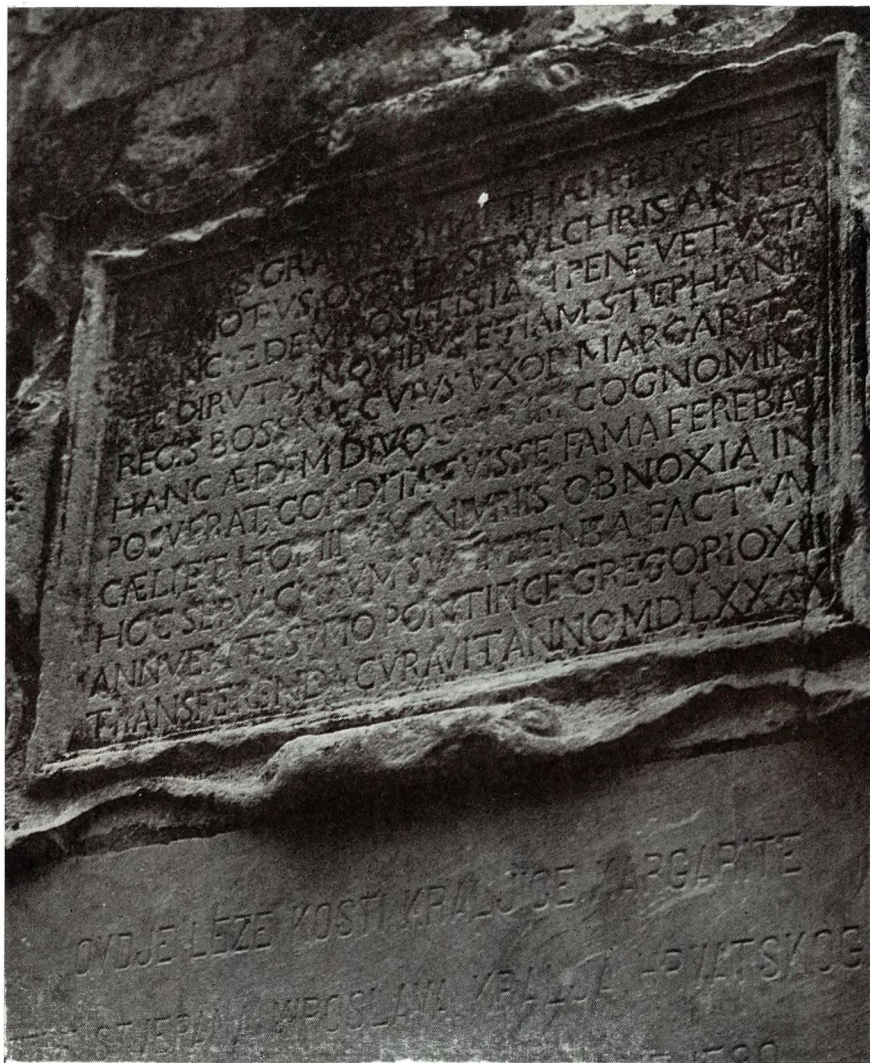 GRADIVS MATTHÆI FILIVS PIETA
MOTVS OSSA E SEPVLCHRIS ANTE
HANC ÆDEM POSITIS IAM PENE VETVSTA
TE DIRVTIS NOVIBVS ETIAM STEPHANI
REGIS BOSSNÆ CVIVS VXOR MARGARITA
HANC ÆDEM DIVO COGNOMINI
POSVERAT CONDITA FVISSE FAMA FEREBAT
CÆLI ET HOMINVM INIVRIIS OBNOXIA IN
HOC SEPVLCHRVM SVA IMPENSA FACTVM
ANNVENTE SVMMO PONTIFICE GREGORIO XIII
TRANSFERENDA CVRAVIT ANNO MDLXXXX
OVDJE LEŽE KOSTI KRALJICE MARGARITE
STJEPANA MIROSLAVA KRALJA HRVATSKOG